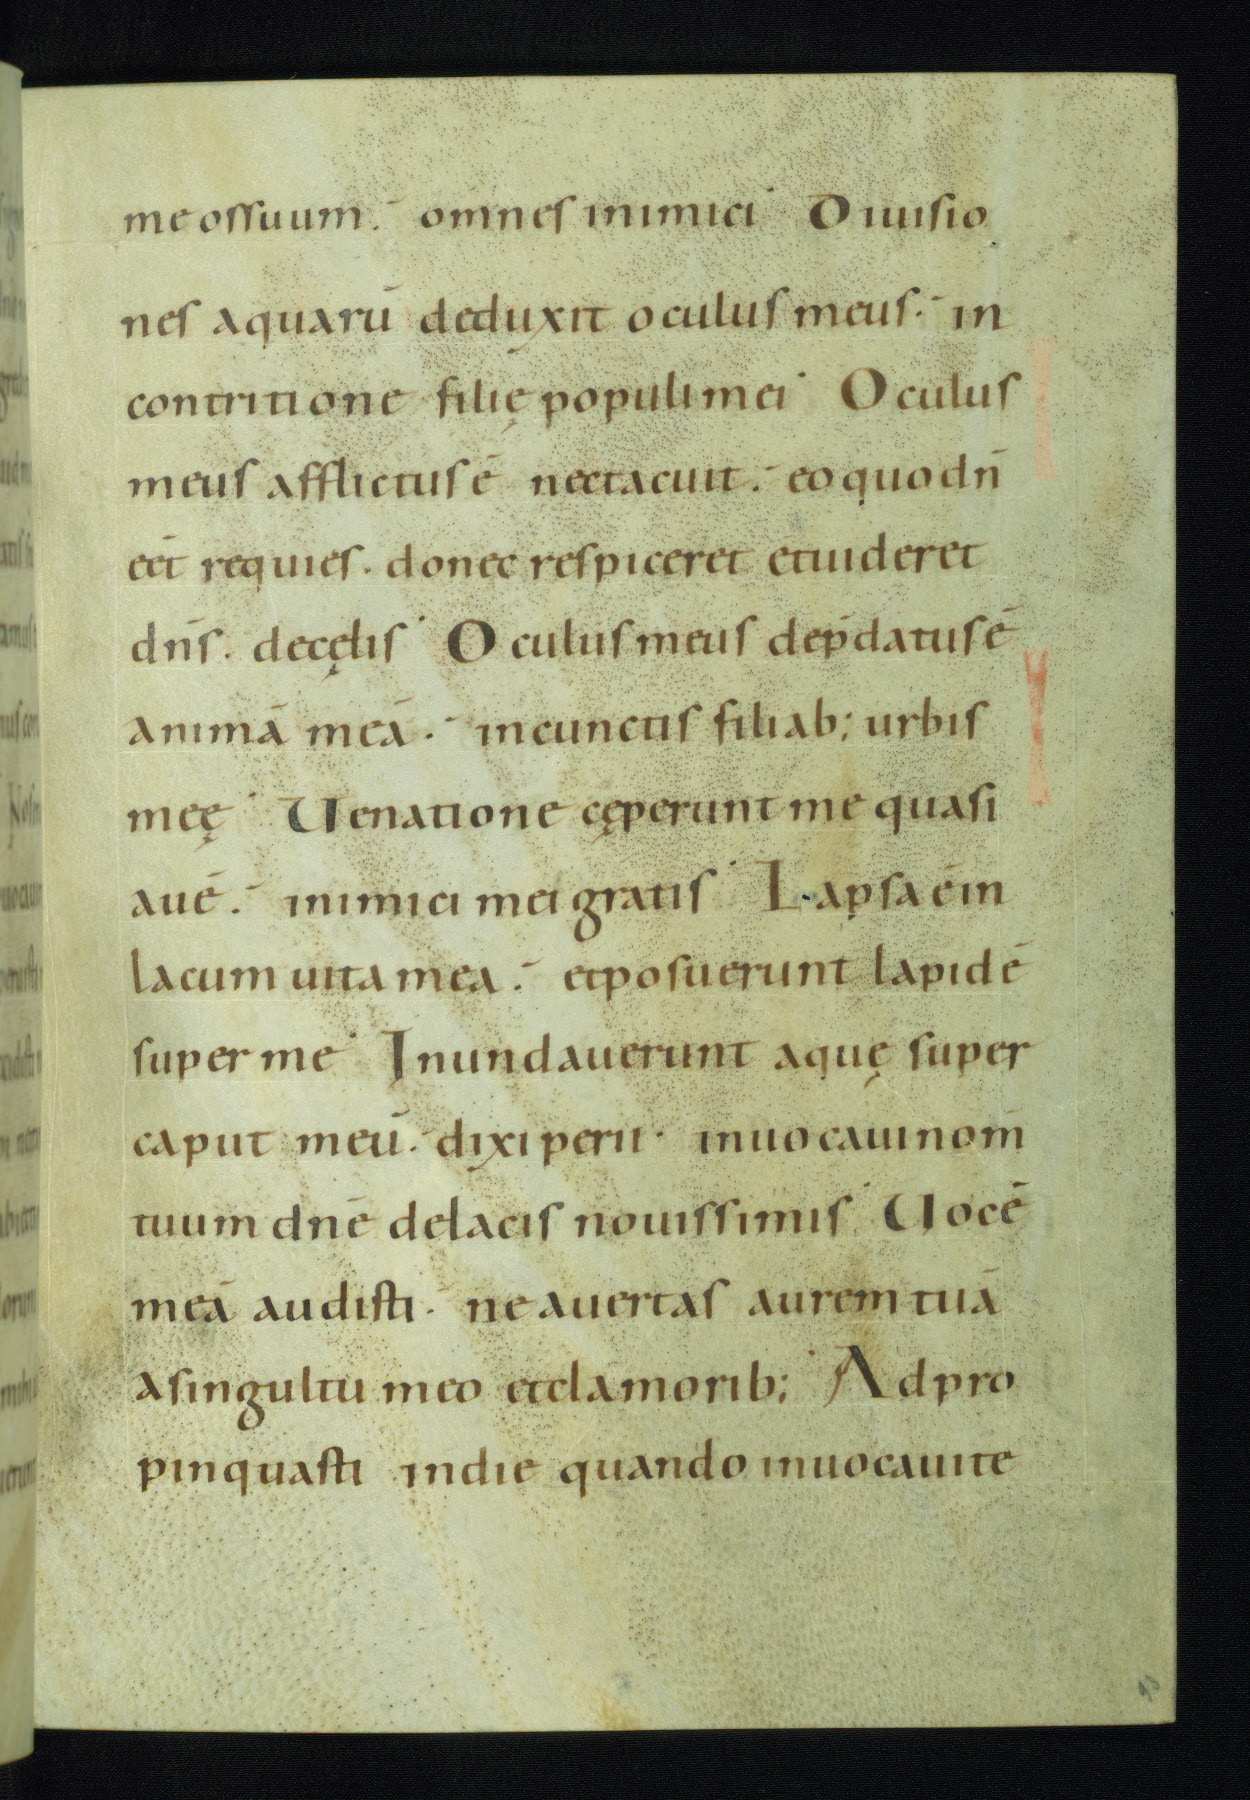 me os suum. omnes inimici Diuisio
nes aquarū deduxit oculus meus. in
contritione filię populi mei Oculus
meus afflictus ē nec tacuit. eo quod ñ
eēt requies. donec respiceret et uideret
dn̄s. de cęlis Oculus meus dep̄datus ē
animā meā. in cunctis filiab; urbis
meę Uenatione cęperunt me quasi
auē. inimici mei gratis Lapsa ē in
lacum uita mea. et posuerunt lapidē
super me Inundauerunt aquę super
caput meū. dixi perii. inuocaui nom̄
tuum dn̄e de lacis nouissimis Uocē
meā audisti. ne auertas aurem tuā
a singultu meo et clamorib; Adpro
pinquasti in die quando inuocaui te